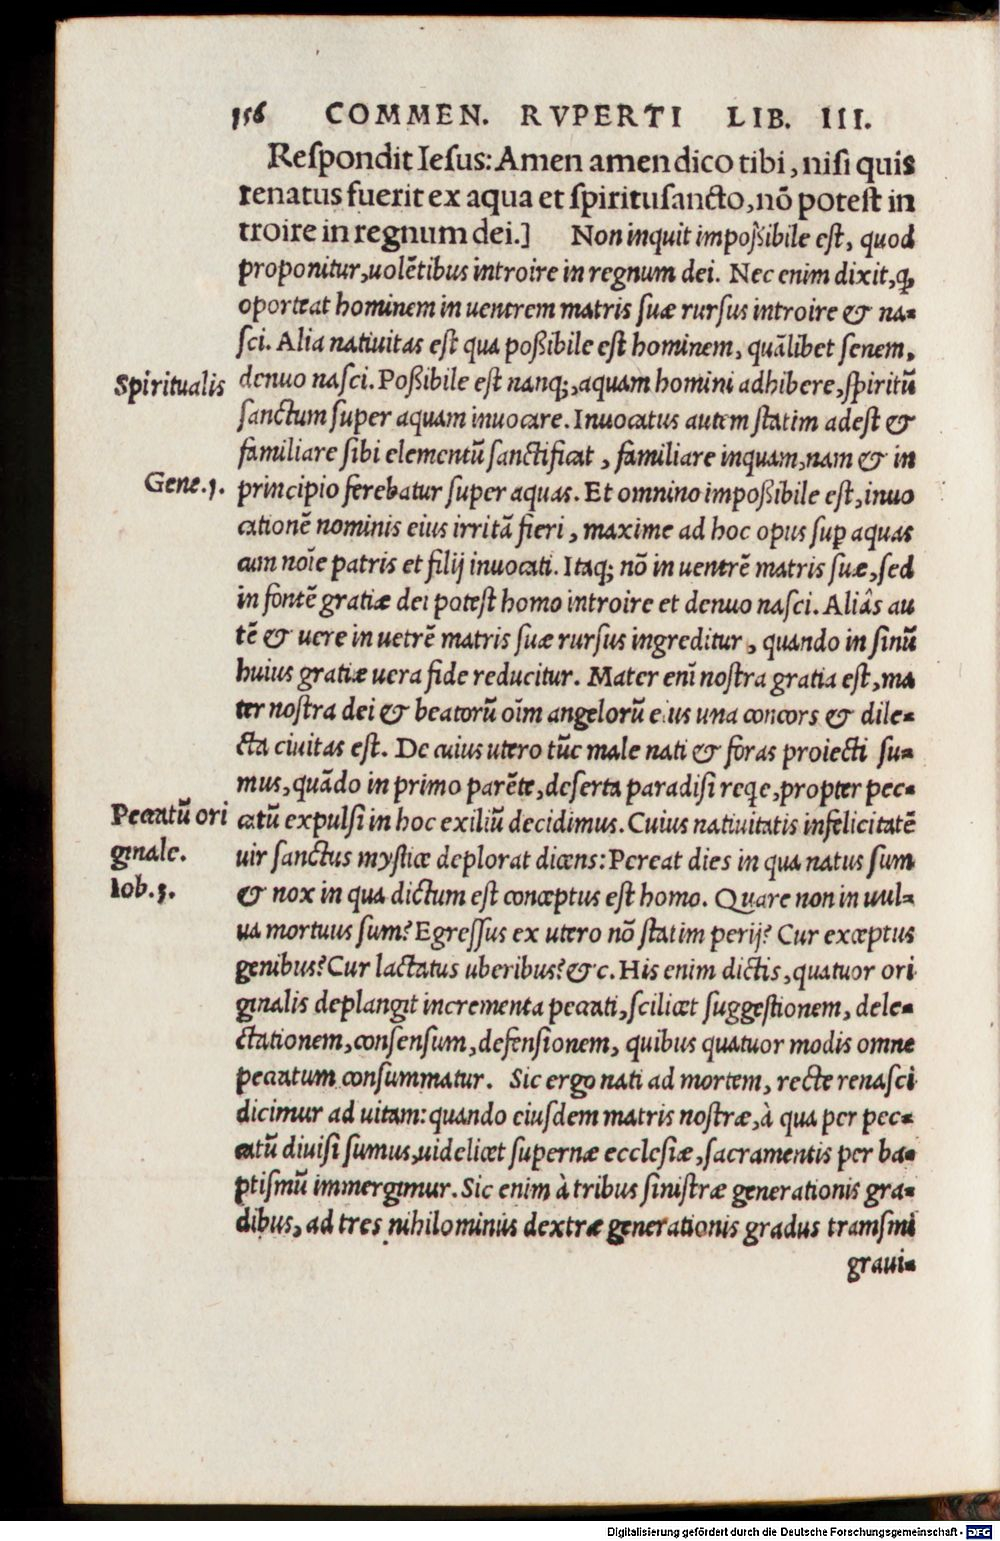 156 COMMEN. RVPERTI LIB. III.
Reſpondit Ieſus: Amen amen dico tibi, niſi quis
renatus fuerit ex aqua et ſpirituſancto, nō poteſt in
troire in regnum dei.] Non inquit impoſſibile eſt, quod
proponitur, uolētibus introire in regnum dei. Nec enim dixit, ꝙ
oporteat hominem in uentrem matris ſuæ rurſus introire & na-
ſci. Alia natiuitas eſt qua poßibile eſt hominem, quālibet ſenem,
Spiritualis
denuo naſci. Poßibile eſt nanq;, aquam homini adhibere, ſpiritū
ſanctum ſuper aquam inuocare. Inuocatus autem ſtatim adeſt &
familiare ſibi elementū ſanctificat, familiare inquam, nam & in
Gene.1.
principio ferebatur ſuper aquas. Et omnino impoßibile eſt, inuo
cationē nominis eius irritā fieri, maxime ad hoc opus ſuꝑ aquas
cum noīe patris et filij inuocati. Itaq; nō in uentrē matris ſuæ, ſed
in fontē gratiæ dei poteſt homo introire et denuo naſci. Aliâs au
tē & uere in uetrē matris ſuæ rurſus ingreditur, quando in ſinū
huius gratiæ uera fide reducitur. Mater enī noſtra gratia eſt, ma
ter noſtra dei & beatorū oīm angelorū eius una concors & dile-
cta ciuitas eſt. De cuius utero tūc male nati & foras proiecti ſu-
mus, quādo in primo parēte, deſerta paradiſi reqe, propter pec-
Peccatū ori
ginale.
Iob.3.
catū expulſi in hoc exiliū decidimus. Cuius natiuitatis infelicitatē
uir ſanctus myſtice deplorat dicens: Pereat dies in qua natus ſum
& nox in qua dictum eſt conceptus eſt homo. Quare non in uul-
ua mortuus ſum? Egreſſus ex utero nō ſtatim perij? Cur exceptus
genibus? Cur lactatus uberibus? &c. His enim dictis, quatuor ori
ginalis deplangit incrementa peccati, ſcilicet ſuggeſtionem, dele-
ctationem, conſenſum, defenſionem, quibus quatuor modis omne
peccatum conſummatur. Sic ergo nati ad mortem, recte renaſci
dicimur ad uitam: quando eiuſdem matris noſtræ, à qua per pec-
catū diuiſi ſumus, uidelicet ſupernæ eccleſiæ, ſacramentis per ba-
ptiſmū immergimur. Sic enim à tribus ſiniſtræ generationis gra-
dibus, ad tres nihilominus dextræ generationis gradus tramſmi
graui-
Digitalisierung gefördert durch die Deutsche Forschungsgemeinschaft - DFG